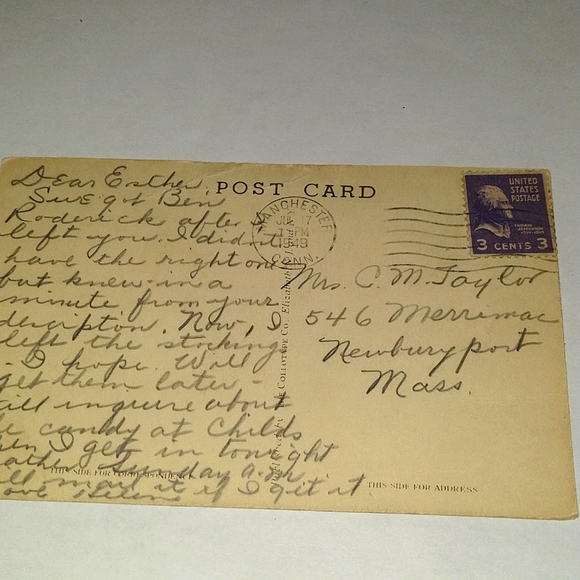 POST CARD
Dear Esther,
Sure got Ben
Roderick after
left you. I didn't
have the right one
but knew in a
minute from your
decription. Now, I
left the stocking
- I hope. Will
get them later -
ill inquire about
e candy at Childs
en I get in tonight
Sunday a.m.
ll mail it if I get it.
ove Helene
MANCHESTER
JUL 17
PM
1949
CONN.
UNITED
STATES
POSTAGE
THOMAS
JEFFERSON
3 CENTS 3
Mrs. C. M. Taylor
546 Merrimac
Newburyport
Mass.
Collotype Co., Elizabeth
THIS SIDE FOR CORRESPONDENCE
THIS SIDE FOR ADDRESS